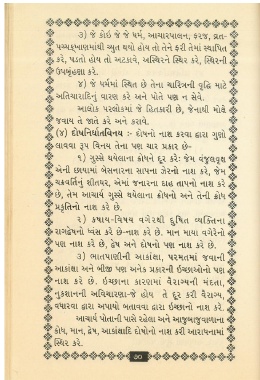 ૩) જે કોઇ જે જે ધર્મ, આચારપાલન, ફરજ, વ્રત-
પચ્ચક્ખાણમાંથી ચ્યુત થયો હોય તો તેને ફરી તેમાં સ્થાપિત
કરે, પડતો હોય તો અટકાવે, અસ્થિરને સ્થિર કરે, સ્થિરની
ઉપબૃંહણા કરે.
૪) જે ધર્મમાં સ્થિત છે તેના ચારિત્રની વૃદ્ધિ માટે
અતિચારાદિનું વારણ કરે અને પોતે પણ ન સેવે.
આલોક પરલોકમાં જે હિતકારી છે, જેનાથી મોક્ષે
જવાય તે જાતે કરે અને કરાવે.
(૪) દોષનિર્ઘાતવિનય :- દોષનો નાશ કરવા દ્વારા ગુણો
લાવવા રૂપ વિનય તેના પણ ચાર પ્રકાર છે-
૧) ગુસ્સે થયેલાના ક્રોધને દૂર કરે: જેમ વંજુલવૃક્ષ
એની છાયામાં બેસનારના સાપના ઝેરનો નાશ કરે, જેમ
ચક્રવર્તિનું શીતઘર, એમાં જનારના દાહ તાપનો નાશ કરે
છે, તેમ આચાર્ય ગુસ્સે થયેલાનો ક્રોધનો અને તેની ક્રોધ
પ્રકૃતિનો નાશ કરે છે.
૨) કષાય-વિષય વગેરેથી દુષિત વ્યક્તિના
રાગદ્વેષનો ધ્વંસ કરે છે-નાશ કરે છે. માન માયા વગેરેનો
પણ નાશ કરે છે, દ્વેષ અને દોષનો પણ નાશ કરે છે.
૩) ભાતપાણીની આકાંક્ષા, પરમતમાં જવાની
આકાંક્ષા અને બીજી પણ અનેક પ્રકારની ઇચ્છાઓનો પણ
નાશ કરે છે. ઇચ્છાના કારણમાં વૈરાગ્યની મંદતા,
નુકશાનની અવિચારણા-જે હોય તે દૂર કરી વૈરાગ્ય,
વધારવા દ્વારા અપાયો બતાવવા દ્વારા ઇચ્છાનો નાશ કરે.
આચાર્ય પોતાની પાસે રહેલા અને આજુબાજુવાળાના
ક્રોધ, માન, દ્વેષ, આકાંક્ષાદિ દોષોનો નાશ કરી આરાધનામાં
સ્થિર કરે.